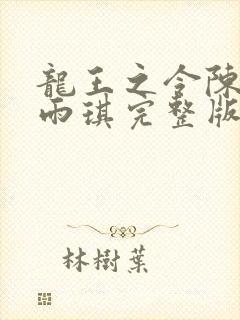 龍王之令陳
雨琪完整版
林樹葉